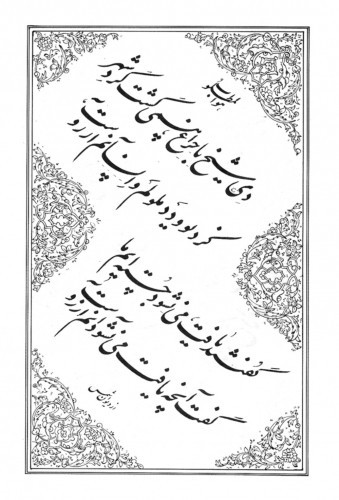 دی شیخ با چراغ همی گشت گرد شهر
کز دیو و دد ملولم و انسانم آرزوست
گفتند یافت می نشود جسته ایم ما
گفت آنچه یافت می نشود آنم آرزوست